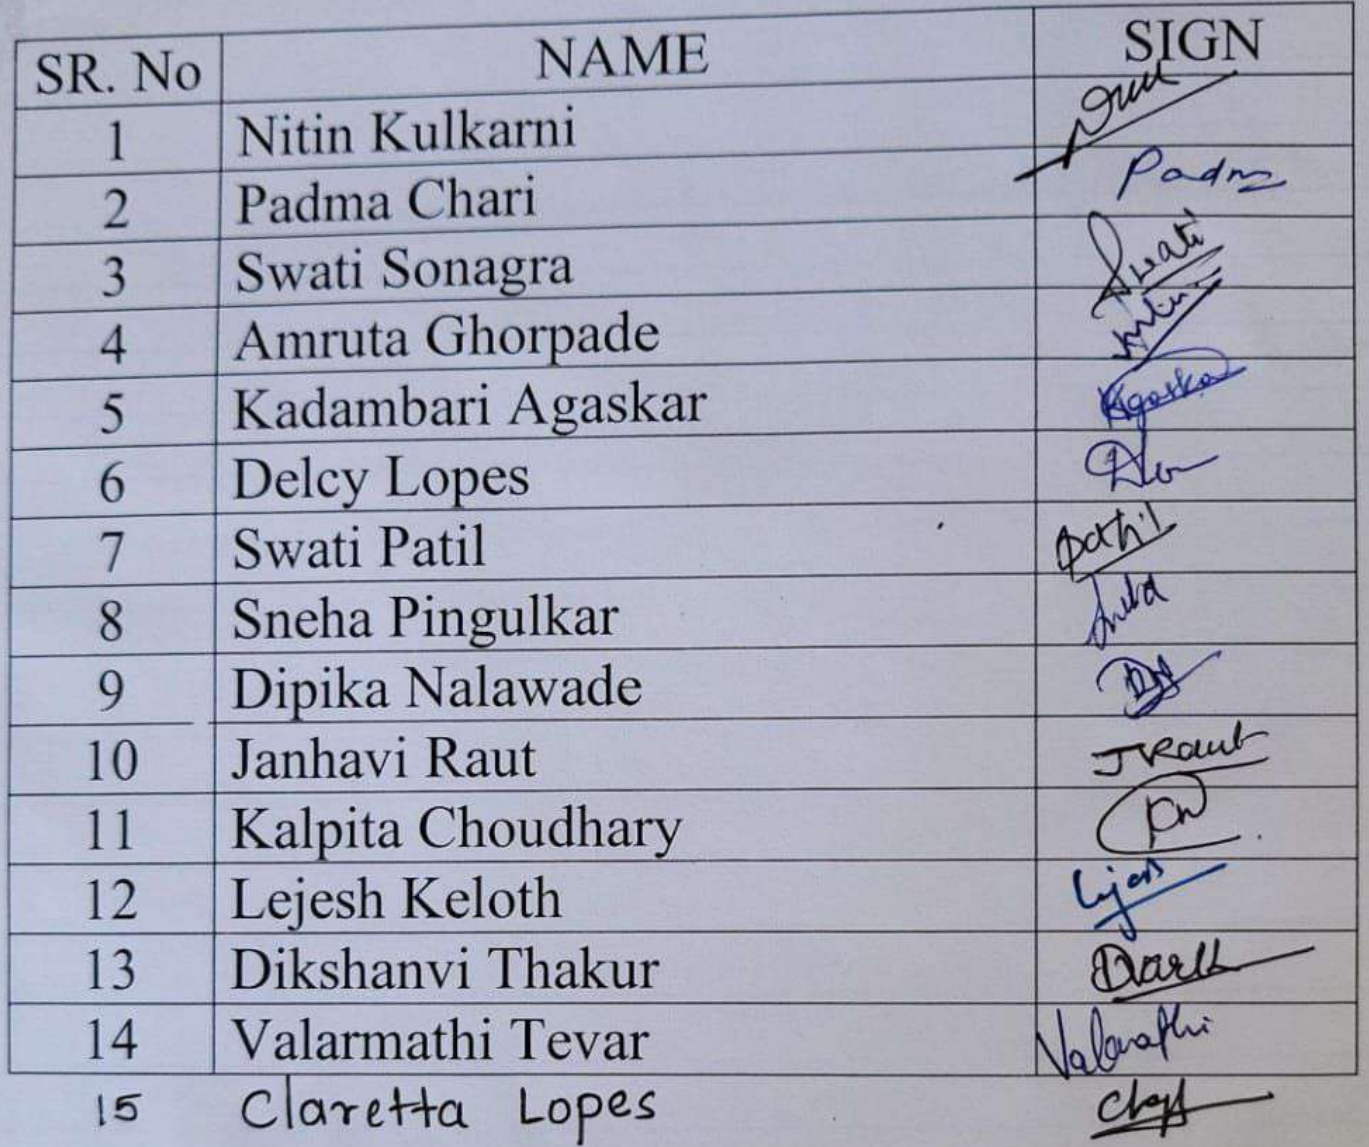 SR. No NAME SIGN
1 Nitin Kulkarni
2 Padma Chari Padma
3 Swati Sonagra Swati
4 Amruta Ghorpade
5 Kadambari Agaskar
6 Delcy Lopes
7 Swati Patil
8 Sneha Pingulkar
9 Dipika Nalawade
10 Janhavi Raut JRaut
11 Kalpita Choudhary
12 Lejesh Keloth
13 Dikshanvi Thakur
14 Valarmathi Tevar
15 Claretta Lopes